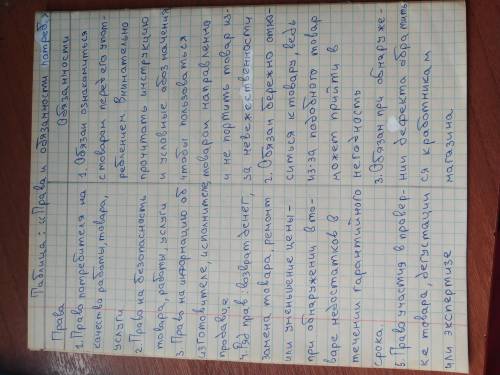 Таблица: «Права и обязанности потреб.»
Права
1. Право потребителя на
качество работы, товара,
услуги
2. Право на безопасность
товара, работы, услуги
3. Право на информацию об
изготовителе, исполнителе,
продавце
4. Ряд прав: возврат денег,
замена товара, ремонт
или уменьшение цены-
при обнаружении в то-
варе недостатков в
течении гарантийного
срока
5. Право участия в провер-
ке товара, дегустации
или экспертизе
Обязанности
1. Обязан ознакомиться
с товаром перед его упот-
реблением. Внимательно
прочитать инструкцию
и условные обозначения
чтобы пользоваться
товаром направленно
и не портить товар из-
за невежественности
2. Обязан бережно отно-
ситься к товару, ведь
из-за подобного товар
может прийти в
негодность
3. Обязан при обнаруже-
нии дефекта обратить
ся к работникам
магазина